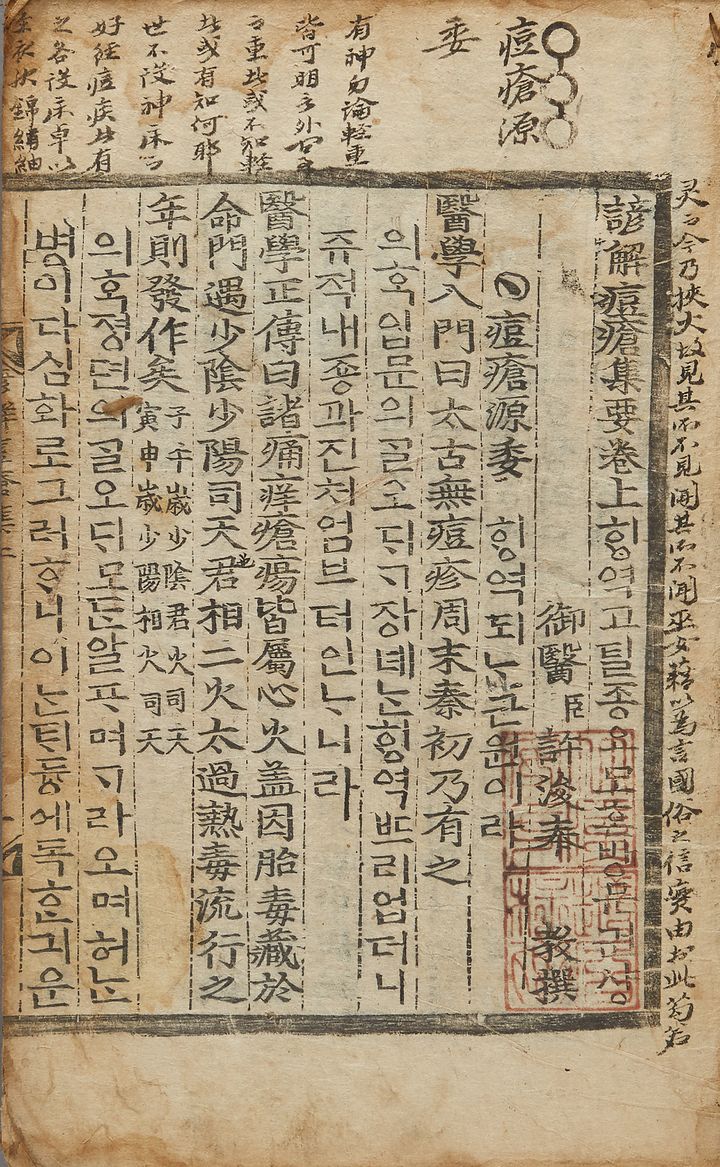 痘瘡源
委
有神勿論輕重
重此或不知輕
此或有知何耶
世不設神床
好經痘疾
之各設床卓以
錦綃紬
灵而今乃挾大故見其所不見聞其所不聞巫女藉以爲言國俗之信實由於此苟若
諺解痘瘡集要卷上 ᄒᆡᆼ역고틸종요모돈방문
御醫臣許浚奉 敎撰
痘瘡源委 ᄒᆡᆼ역되ᄂᆞᆫ근원이라
醫學入門曰太古無痘疹周末秦初乃有之
의ᄒᆞᆨ입문의ᄀᆞᆯ오ᄃᆡᄀᆞ장녜ᄂᆞᆫᄒᆡᆼ역ᄠᅳ리업더니
쥬적내죵과진처엄브터인ᄂᆞ니라
醫學正傳曰諸痛痒瘡瘍皆屬心火盖因胎毒藏於
命門遇少陰少陽司天君相二火太過熱毒流行之
年則發作矣 子午歲少陰君火司天 寅申歲少陽相火司天
의ᄒᆞᆨ졍뎐의ᄀᆞᆯ오ᄃᆡ모ᄃᆞᆫ알ᄑᆞ며ᄀᆞ라오며허ᄂᆞᆫ
병이다심화로그러ᄒᆞ니이ᄂᆞᆫᄐᆡ듕에독ᄒᆞᆫ긔운